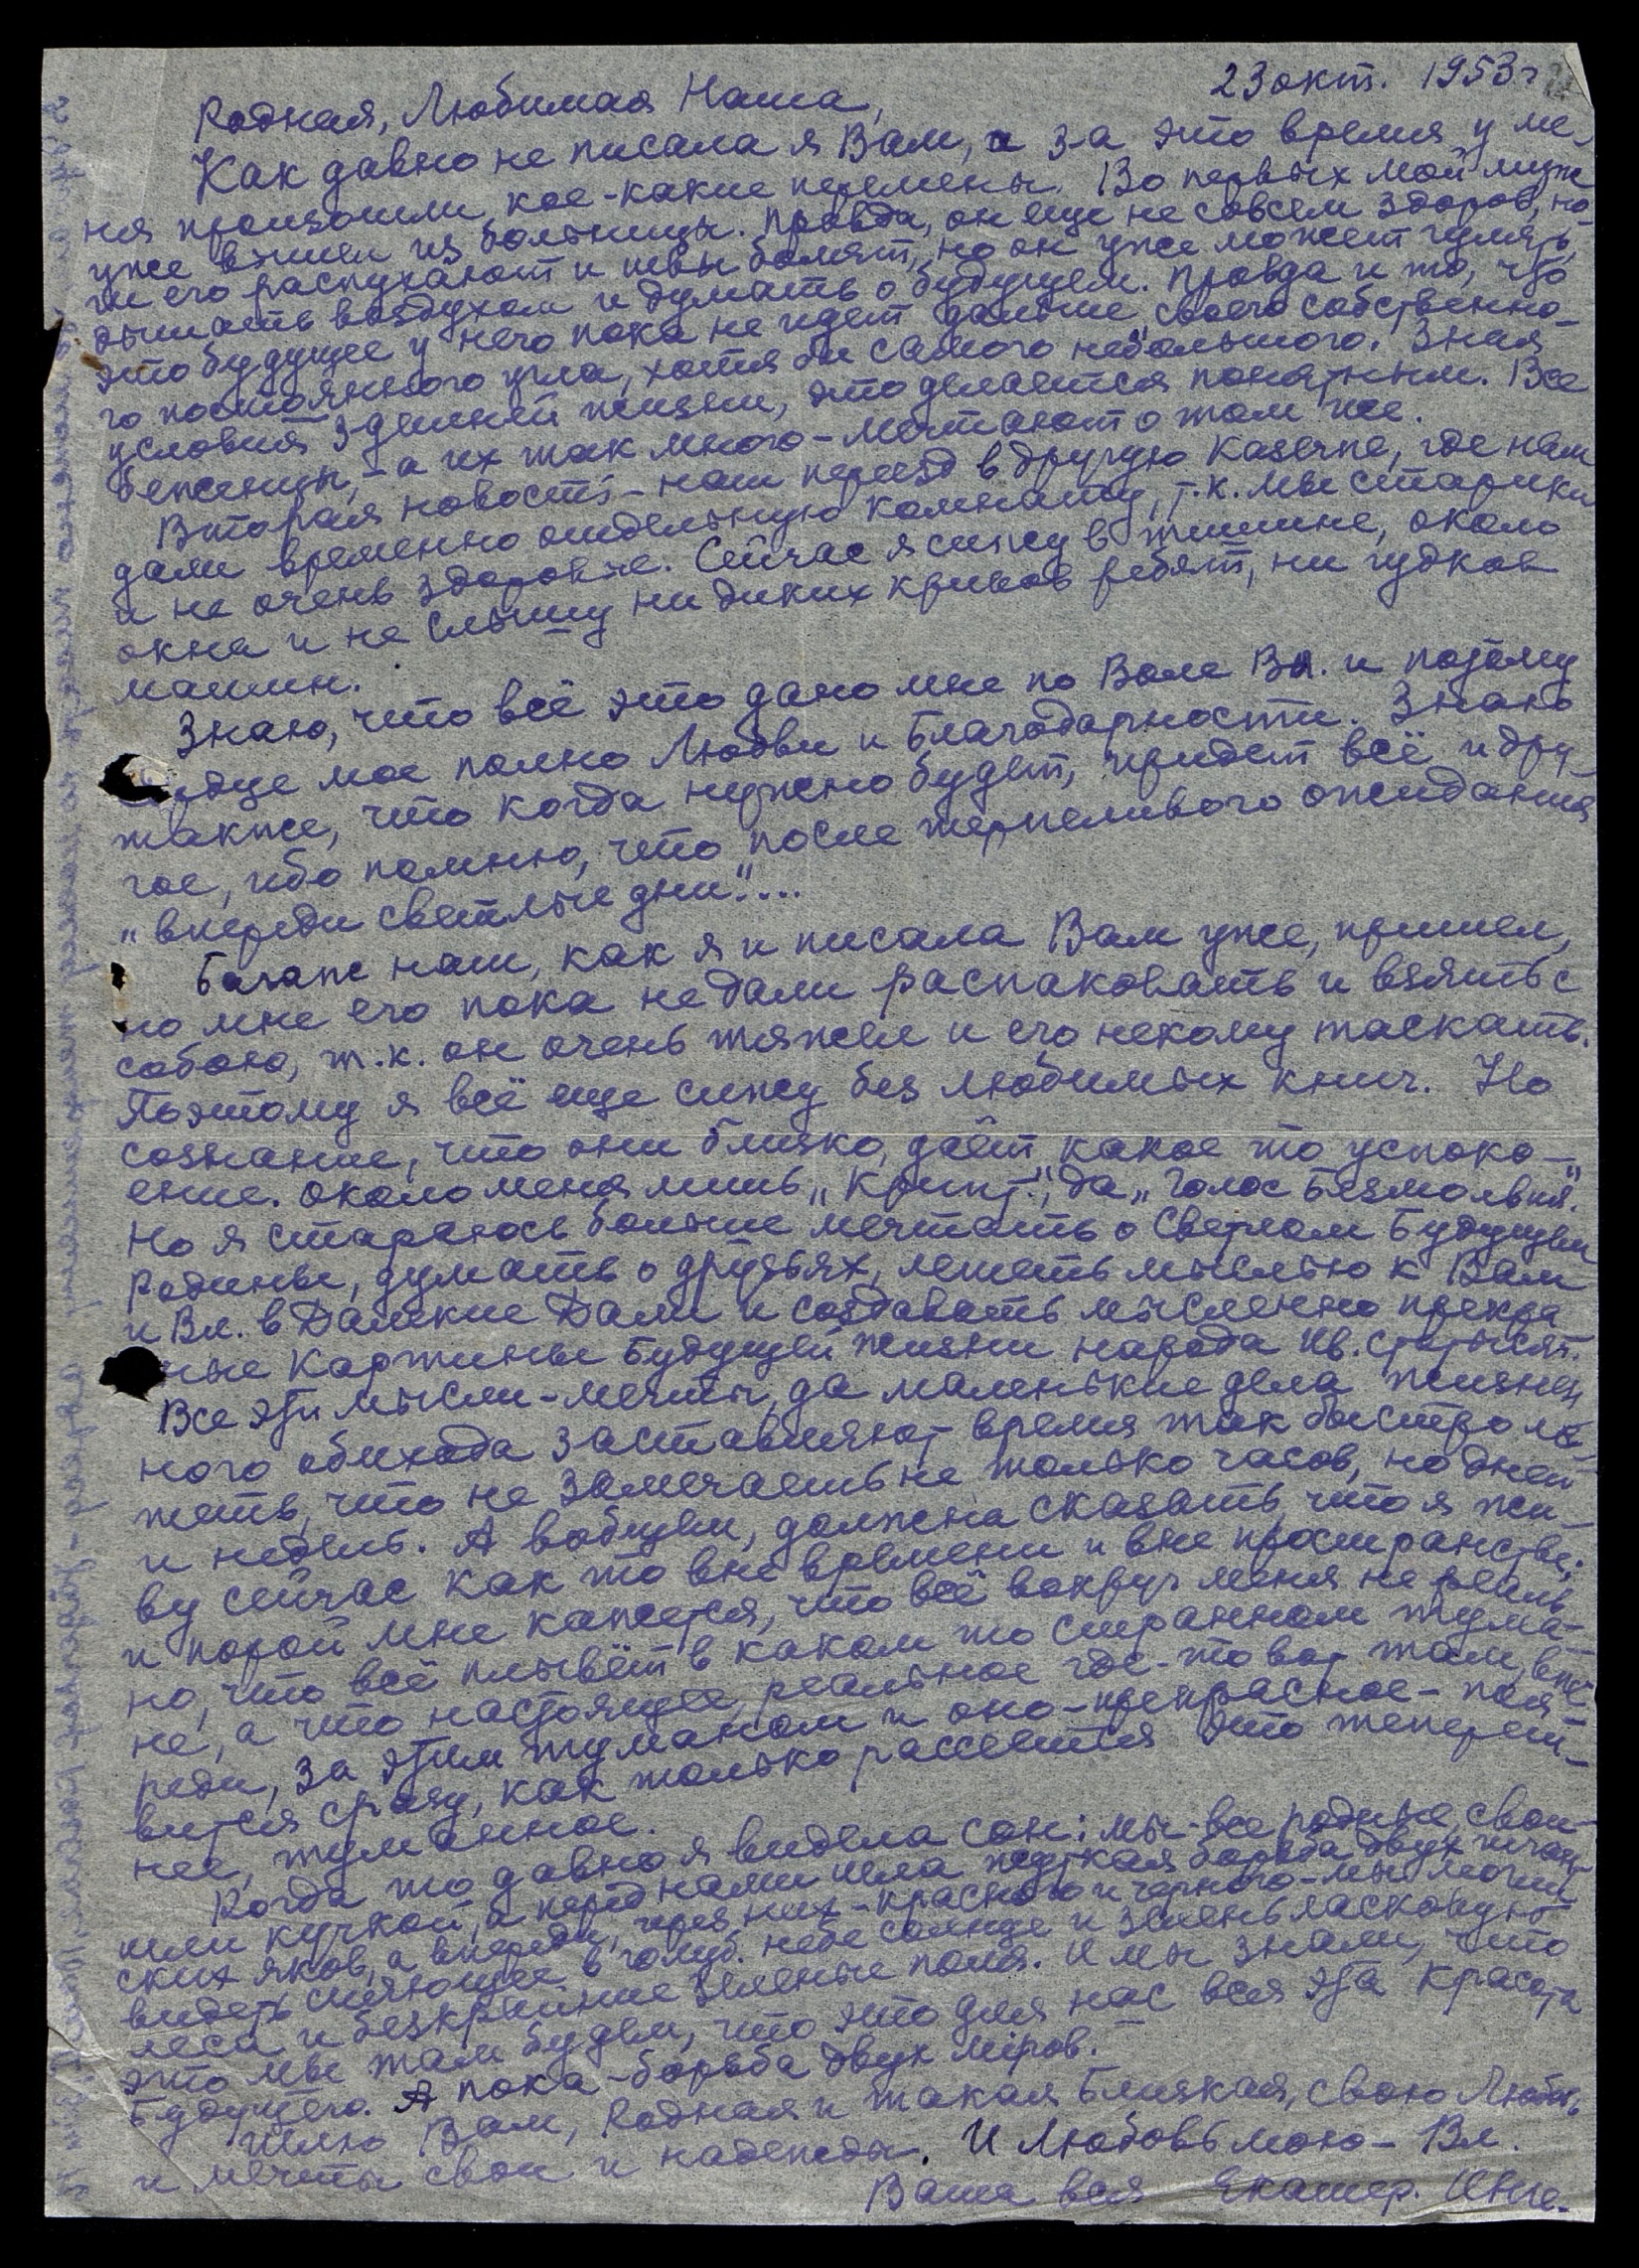 23 окт. 1953 г
Родная, Любимая Наша,
Как давно не писала я Вам, а за это время у ме-
ня произошли кое-какие перемены. Во первых мой муж
уже вышел из больницы. Правда, он еще не совсем здоров, но-
ги его распухают и швы болят, но он уже может гулять,
дышать воздухом и думать о будущем. Правда и то, что
это будущее у него пока не идет дальше „своего собственно-
го постоянного угла, хотя бы самого небольшого". Зная
условия здешней жизни, это делается понятным. Все
беженцы, - а их так много - мечтают о том же.
Вторая новость - наш переезд в другую Kaserne, где нам
дали временно отдельную комнату, т.к. мы старики
и не очень здоровые. Сейчас я сижу в тишине, около
окна и не слышу ни диких криков ребят, ни гудков
машин.
Знаю, что всё это дано мне по Воле Вл. и потому
сердце мое полно Любви и Благодарности. Знаю
также, что когда нужно будет, придет всё и дру-
гое, ибо помню, что „после терпеливого ожидания
„впереди светлые дни"...
Багаж наш, как я и писала Вам уже, пришел,
но мне его пока не дали распаковать и взять с
собою, т.к. он очень тяжел и его некому таскать.
Поэтому я всё еще сижу без любимых книг. Но
сознание, что они близко, даёт какое то успоко-
ение. Около меня лишь „Крипт.", да „Голос Безмолвия".
Но я стараюсь больше мечтать о Светлом Будущем
Родины, думать о друзьях, лететь мыслью к Вам
и Вл. в Далекие Дали и создавать мысленно прекра
ные Картины Будущей Жизни народа Ив. Стотысяч.
Все эти мысли-мечты, да маленькие дела жизнен
ного обихода заставляют время так быстро ле-
теть, что не замечаешь не только часов, но дней
и недель. А вообщем, должна сказать, что я жи-
ву сейчас как то вне времени и вне пространства;
и порой мне кажется, что всё вокруг меня не реаль
но, что всё плывёт в каком то странном тума-
не, а что настоящее, реальное где-то вот там, впе-
реди, за этим туманом и оно - прекрасное - поя-
вится сразу, как только рассеется это тепереш-
нее, туманное.
Когда то давно я видела сон: мы - все родные, свои
шли кучкой, а перед нами шла жуткая борьба двух гигант-
ских яков, а впереди, через них - красного и черного - мы могли
видеть сияющее в голуб. небе солнце и зелень ласковую
леса и безкрайние зеленые поля. И мы знали, что
это мы там будем, что это для нас вся эта Красота
Будущего. А пока - борьба двух мiров.
Шлю Вам, Родная и такая Близкая, свою Любовь
и мечты свои и надежды. И Любовь мою - Вл.
Ваша вся Екатер. Инге.